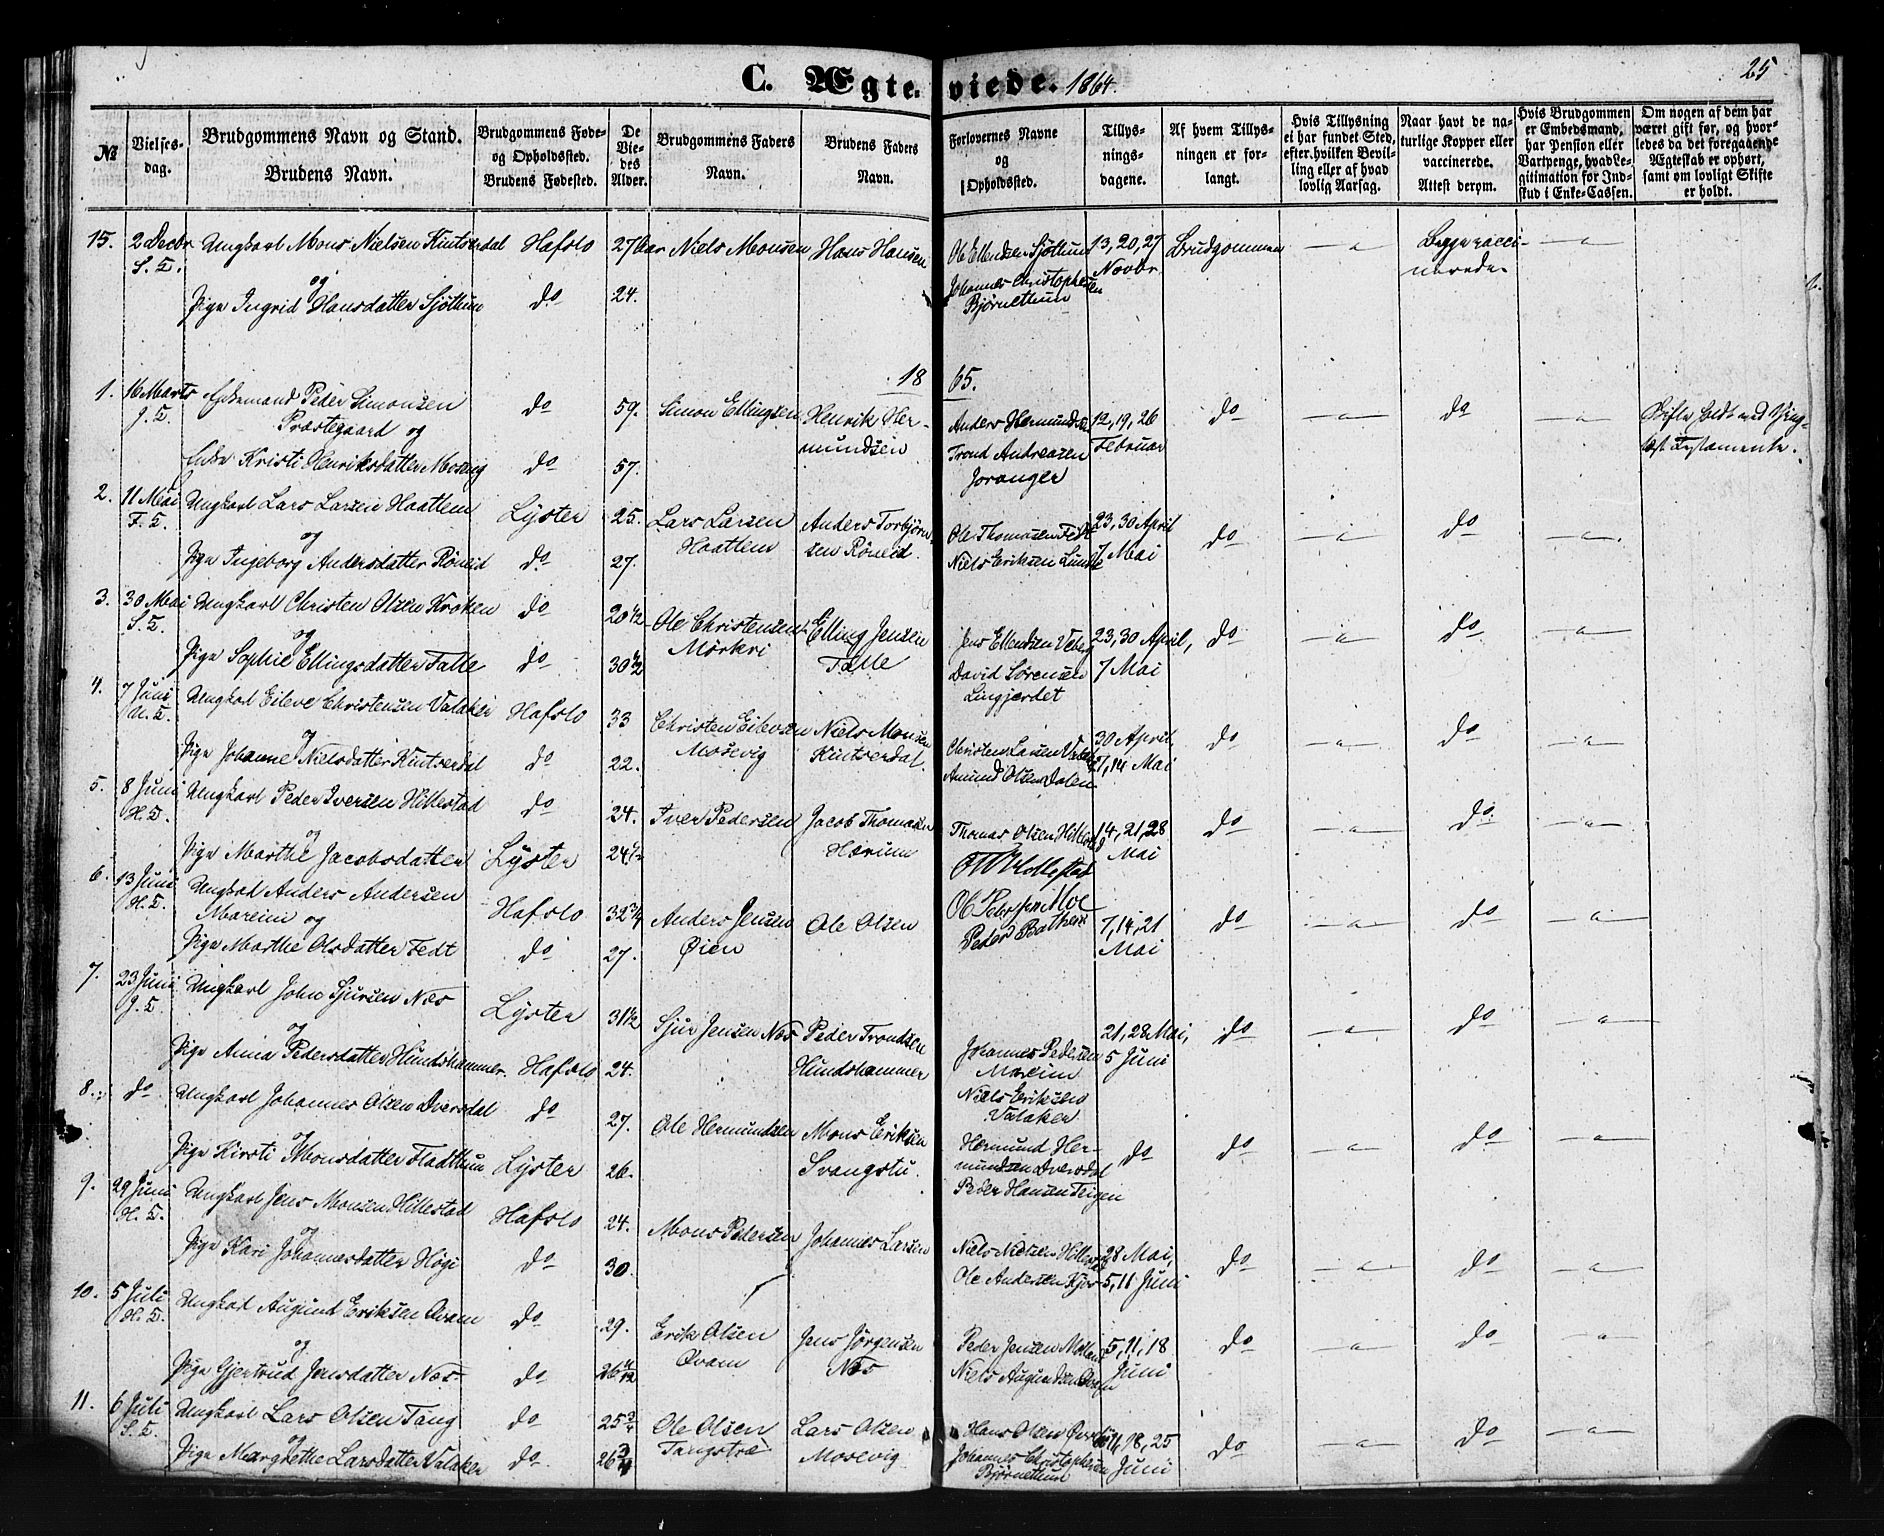 25
C. Ægteviede. 1864.
№
Vielsesdag.
Brudgommens Navn og Stand.
Brudens Navn.
Brudgommens Føde- og Opholdssted.
Brudens Fødested.
De Viedes Alder.
Brudgommens Faders Navn.
Brudens Faders Navn.
Forlovernes Navne og Opholdssted.
Tillysningsdagene.
Af hvem Tillysningen er forlangt.
Hvis Tillysning ei har fundet Sted, efter hvilken Bevilling eller af hvad lovlig Aarsag.
Naar havt de naturlige Kopper eller vaccinerede.
Attest derom.
Hvis Brudgommen er Embedsmand, har Pension eller Vartpenge, hvad Legitimation for Indskud i Enke-Cassen.
Om nogen af dem har været gift før, og hvorledes da det foregaaende Ægteskab er ophørt, samt om lovligt Skifte er holdt.
15. 2 Decbr Ungkarl Mons Nielsen Kintserdal Hafslo 27 aar Niels Monsen Hans Hansen Ole Ellendsen Sjøthun 13, 20, 27 Brudgommen —a— Begge vacci- —a—
S. K. og Johannes Christophersen Novbr. nerede.
Pige Ingrid Hansdatter Sjøthun do 24. Bjørnethun
1865.
1. 16 Marts Enkemand Peder Simonsen do 59. Simon Ellingsen Henrik Her- Anders Hermundsen 12, 19, 26 do —a— do —a— Skifte holdt
Præstegaard og mundsen Trond Andreasen Februar Testamente.
Enke Kristi Henriksdatter Moevig do 57. Joranger
2. 11 Mai Ungkarl Lars Larsen Haatlem Lyster 25. Lars Larsen Anders Torbjørn- Ole Thomassen Fedt 23, 30 April do —a— do —a—
og Haatlem sen Røneid Niels Eriksen Lunde 7 Mai
Pige Ingeborg Andersdatter Røneid do 27.
3. 30 Mai Ungkarl Christen Olsen Kroken do 20 1/2 Ole Christensen Elling Jensen Jens Ellendsen 23, 30 April, do —a— do —a—
og Mørkri Talle David Sørensen 7 Mai
Pige Sophie Ellingsdatter Talle do 30 1/2 Lingjerdet
4. 7 Juni Ungkarl Eileve Christensen Valaker Hafslo 33 Christen Eilevsen Niels Monsen Christen Larsen Valaker 30 April do —a— do —a—
og Mosevig Kintserdal Amund Olsen Dalen 7, 14 Mai
Pige Johanne Nielsdatter Kintserdal do 22.
5. 8 Juni Ungkarl Peder Iversen Hillestad do 24. Iver Pedersen Jacob Thomassen Thomas Olsen Hillestad 14, 21, 28 do —a— do —a—
og Hærum Mai
Pige Marthe Jacobsdatter Lyster 24 1/2
6. 13 Juni Ungkarl Anders Andersen Hafslo 32 3/4 Anders Jensen Ole Olsen Ol. Pedersen Moe 7, 14, 21 do —a— do —a—
Mareim og Øien Peder Mai
Pige Marthe Olsdatter Fedt do 27.
7. 23 Juni Ungkarl John Sjursen Næs Lyster 31 1/2 Sjur Jensen Næs Peder Trondsen Johannes Pedersen 21, 28 Mai, do —a— do —a—
og Hundshammer Mareim 5 Juni
Pige Anna Pedersdatter Hundshammer Hafslo 24. Niels Eriksen
Valaker
8. do Ungkarl Johannes Olsen Dversdal do 27. Ole Hermundsen Mons Eriksen Hermund Her- do do —a— do —a—
og Svangstu mundsen Dversdal
Pige Kirsti Monsdatter Fladthun Lyster 26. Peder Hansen Teigen
9. 29 Juni Ungkarl Jens Monsen Hillestad Hafslo 24. Mons Pedersen Johannes Larsen Niels Nielsen Hillestad 28 Mai, do —a— do —a—
og Ole Andersen Kjos 5, 11 Juni
Pige Kari Johannesdatter Høgi do 30.
10. 5 Juli Ungkarl Augund Eriksen Qvam do 29. Erik Olsen Jens Jørgensen Peder Jensen Molland 5, 11, 18 do —a— do —a—
og Qvam Næs Niels Augundsen Qvam Juni
Pige Gjertrud Jensdatter Næs do 26 4/12
11. 6 Juli Ungkarl Lars Olsen Tang do 25 3/4 Ole Olsen Lars Olsen Hans Olsen 11, 18, 25 do —a— do —a—
og Tangstræ Mosevig Johannes Christophersen Juni
Pige Margrethe Larsdatter Valaker do 26 3/4 Bjørnethun